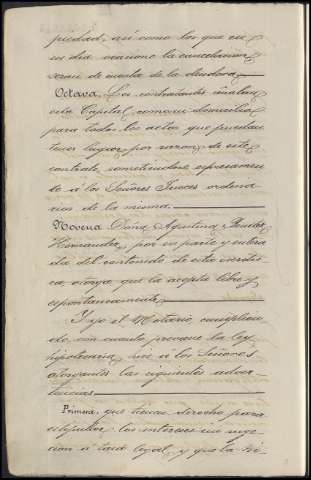 piedad, así como los que en
su día ocasione la cancelacion
serán de cuenta de la deudora.
Octava. Los contratantes señalan
esta Capital como su domicilio
para todos los actos que puedan
tener lugar por razon de este
contrato, sometiendose espresamen
te a los Señores Jueces ordina
rios de la misma.
Novena Doña Agustina
Hernandez, por su parte y entera
da del contenido de esta escritu
ra, otorga que la acepta libre y
espontaneamente.
Y yo el Notario, cumplien
do con cuanto previene la ley
hipotecaria, hice a los Señores
otorgantes las siguientes adver
tencias.
Primera: que tienen derecho para
estipular los intereses sin suge
cion a tasa legal, y que la hi-